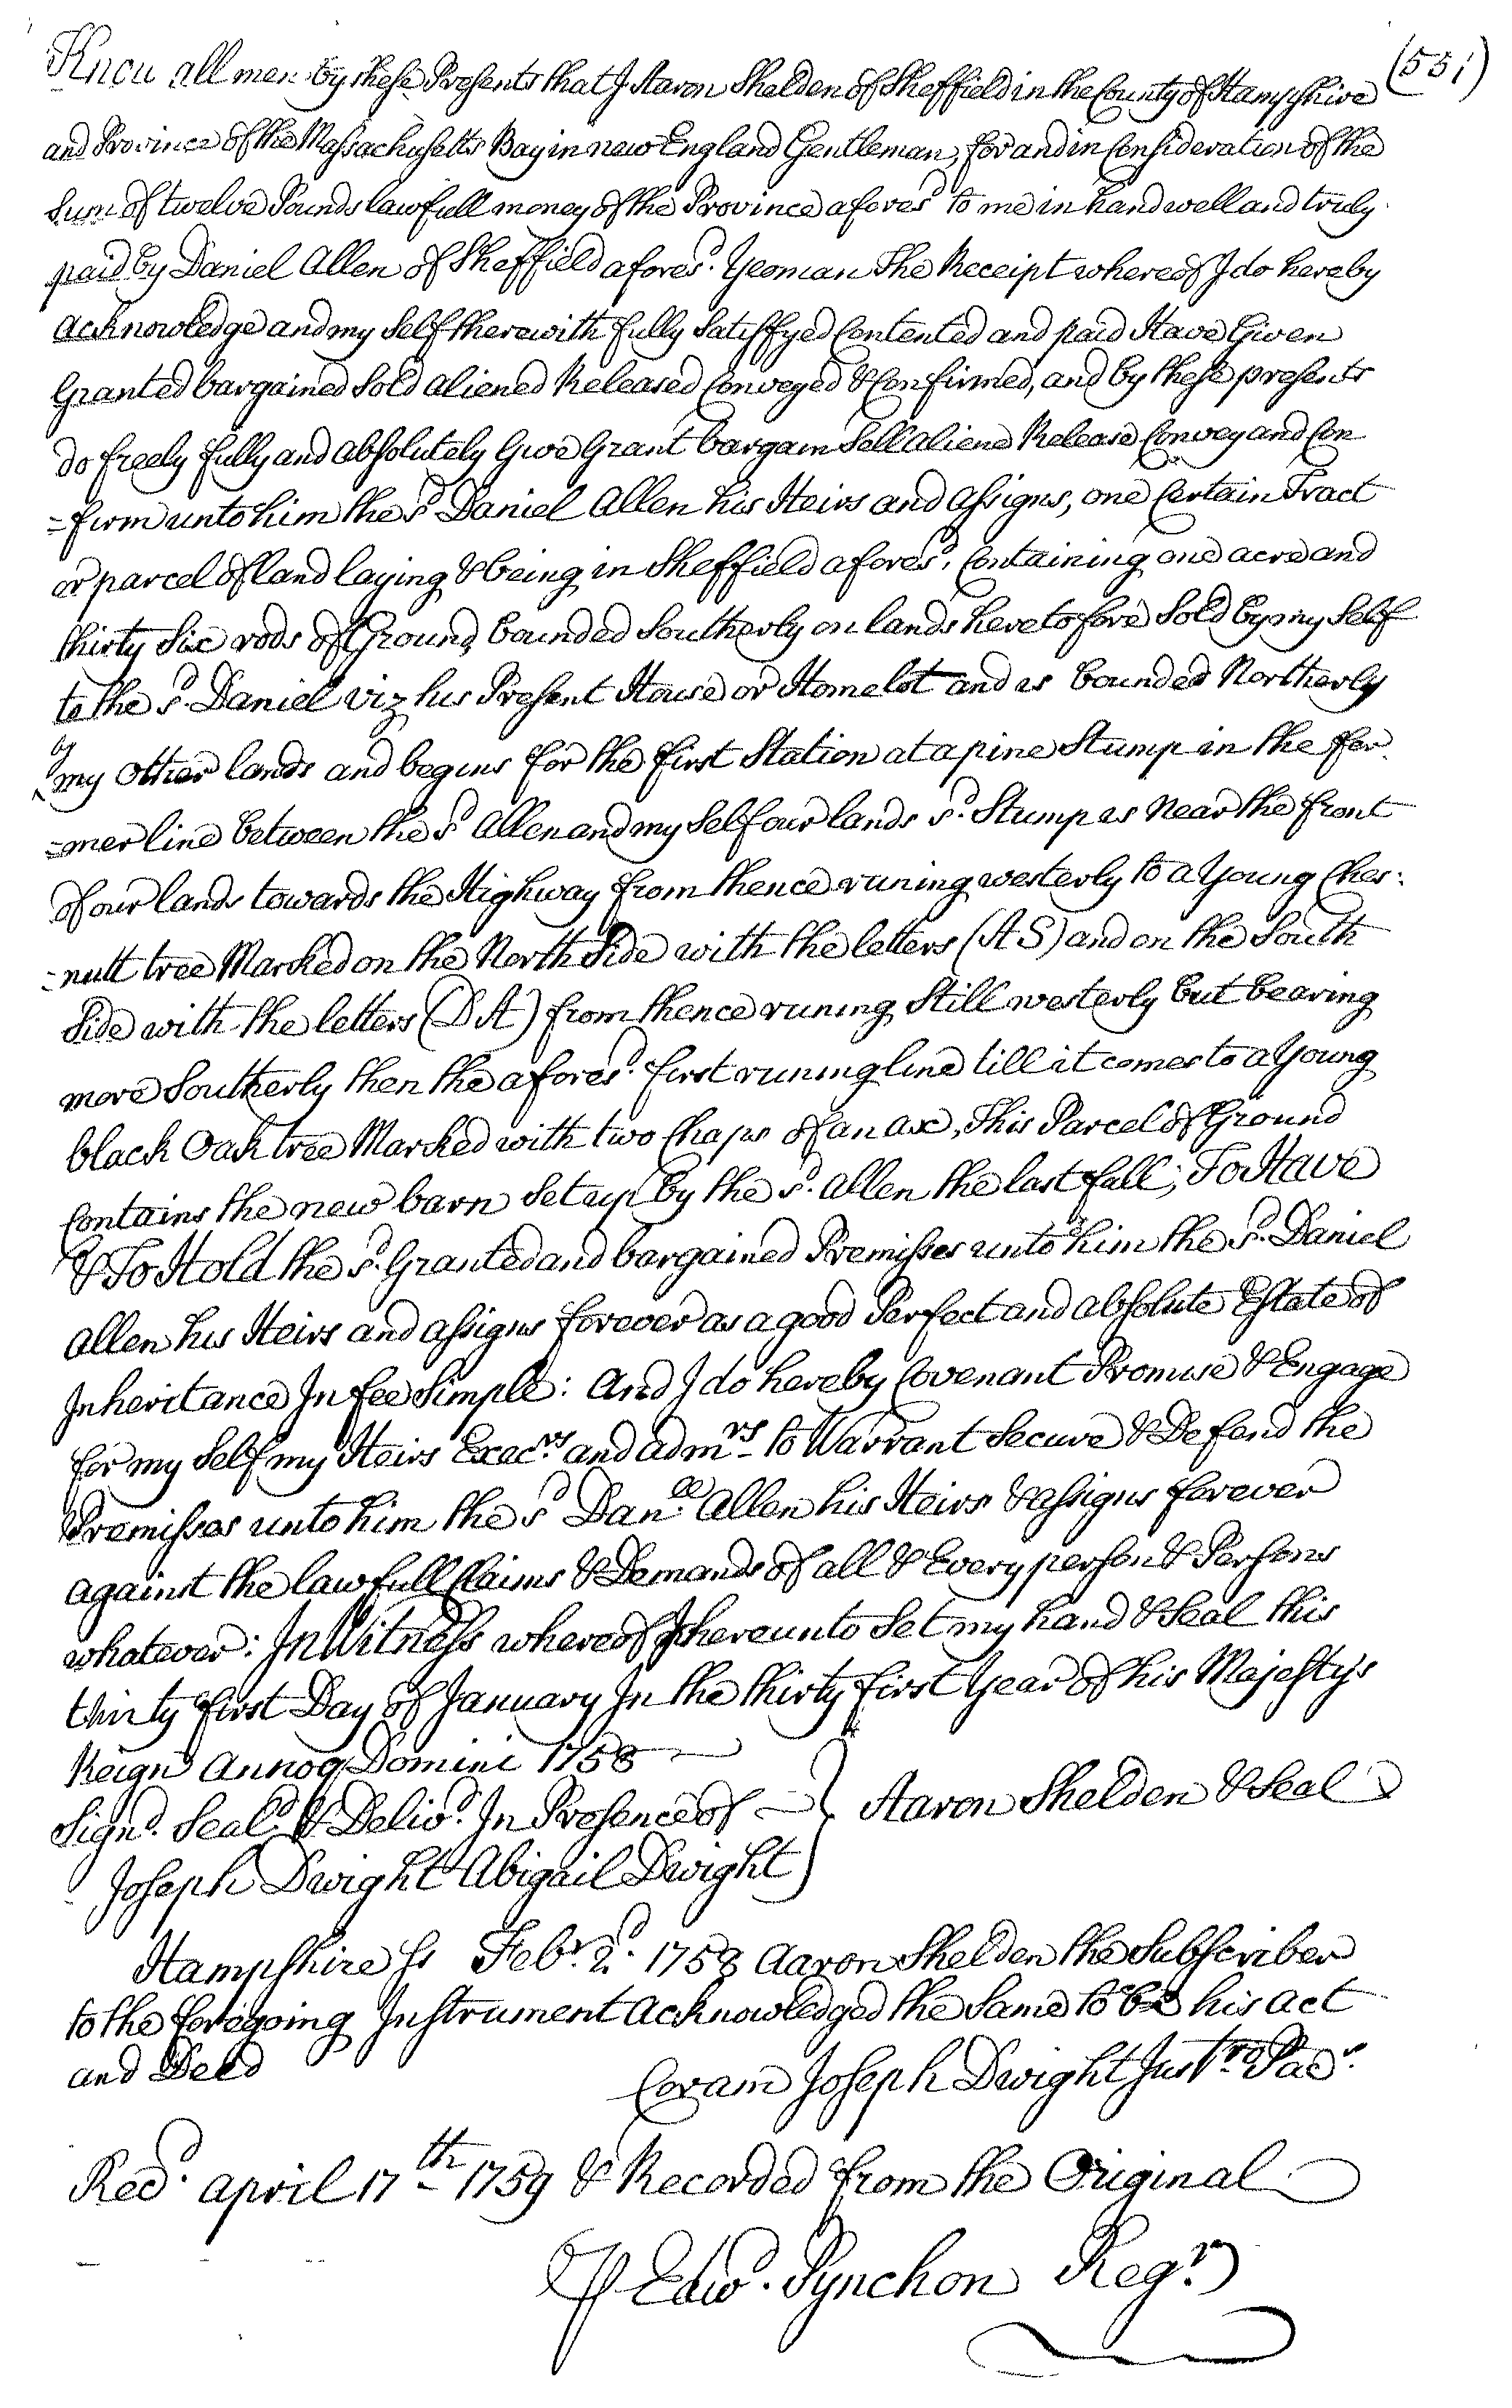 (551)
Know all men by these Presents that I Aaron Shelden of Sheffield in the County of Hampshire
and Province of the Massachusetts Bay in new England Gentleman, for and in Consideration of the
Sum of twelve Pounds lawfull money of the Province afores.d to me in hand well and truly
paid by Daniel Allen of Sheffield afores.d Yeoman The Receipt whereof I do hereby
acknowledge and my Self therewith fully Satisffyed Contented and paid Have Given
Granted bargained Sold aliened Released Conveyed & Confirmed, and by these presents
do freely fully and absolutely Give Grant bargain Sell aliene Release Convey and Con
=firm unto him the s.d Daniel Allen his Heirs and assigns, one Certain Tract
or parcel of land laying & being in Sheffield afores.d, Containing one acre and
thirty Six rods of Ground bounded Southerly on lands heretofore Sold by my Self
to the s.d Daniel viz his Present House or Homelot and is bounded Northerly
by
my Other lands and begins for the first Station at a pine Stump in the for
=mer line between the s.d Allen and my Self our lands s.d Stump is Near the front
of our lands towards the Highway from thence runing westerly to a Young Ches:
=nutt tree Marked on the North Side with the letters (A S) and on the South
Side with the letters (D A) from thence runing Still westerly but bearing
more Southerly then the afores.d first runing line till it comes to a Young
black Oak tree Marked with two Chaps of an ax, This Parcel of Ground
Contains the new barn Set up by the s.d Allen the last fall; To Have
& To Hold the s.d Granted and bargained Premisses unto him the s.d Daniel
Allen his Heirs and assigns forever as a good Perfect and absolute Estate of
Inheritance In fee Simple: And I do hereby Covenant Promise & Engage
for my Self my Heirs Exac.rs and adm.rs to Warrant Secure & Defend the
Premisses unto him the s.d Dan.ll Allen his Heirs & assigns forever
against the lawfull Claims & Demands of all & Every person & Persons
whatever: In Witness whereof I hereunto Set my hand & Seal this
thirty first Day of January In the thirty first Year of his Majesty's
Reign Annoq Domini 1758
Sign.d Seal.d & Deliv.d In Presence of } Aaron Shelden & Seal
Joseph Dwight Abigail Dwight
Hampshire ss Feb.r 2.d 1758 Aaron Shelden the Subscriber
to the foregoing Instrument acknowledged the Same to be his act
and Deed
Coram Joseph Dwight Just.ro Pac.s
Rec.d april 17th 1759 & Recorded from the Original
P Edw.d Pynchon Reg.r